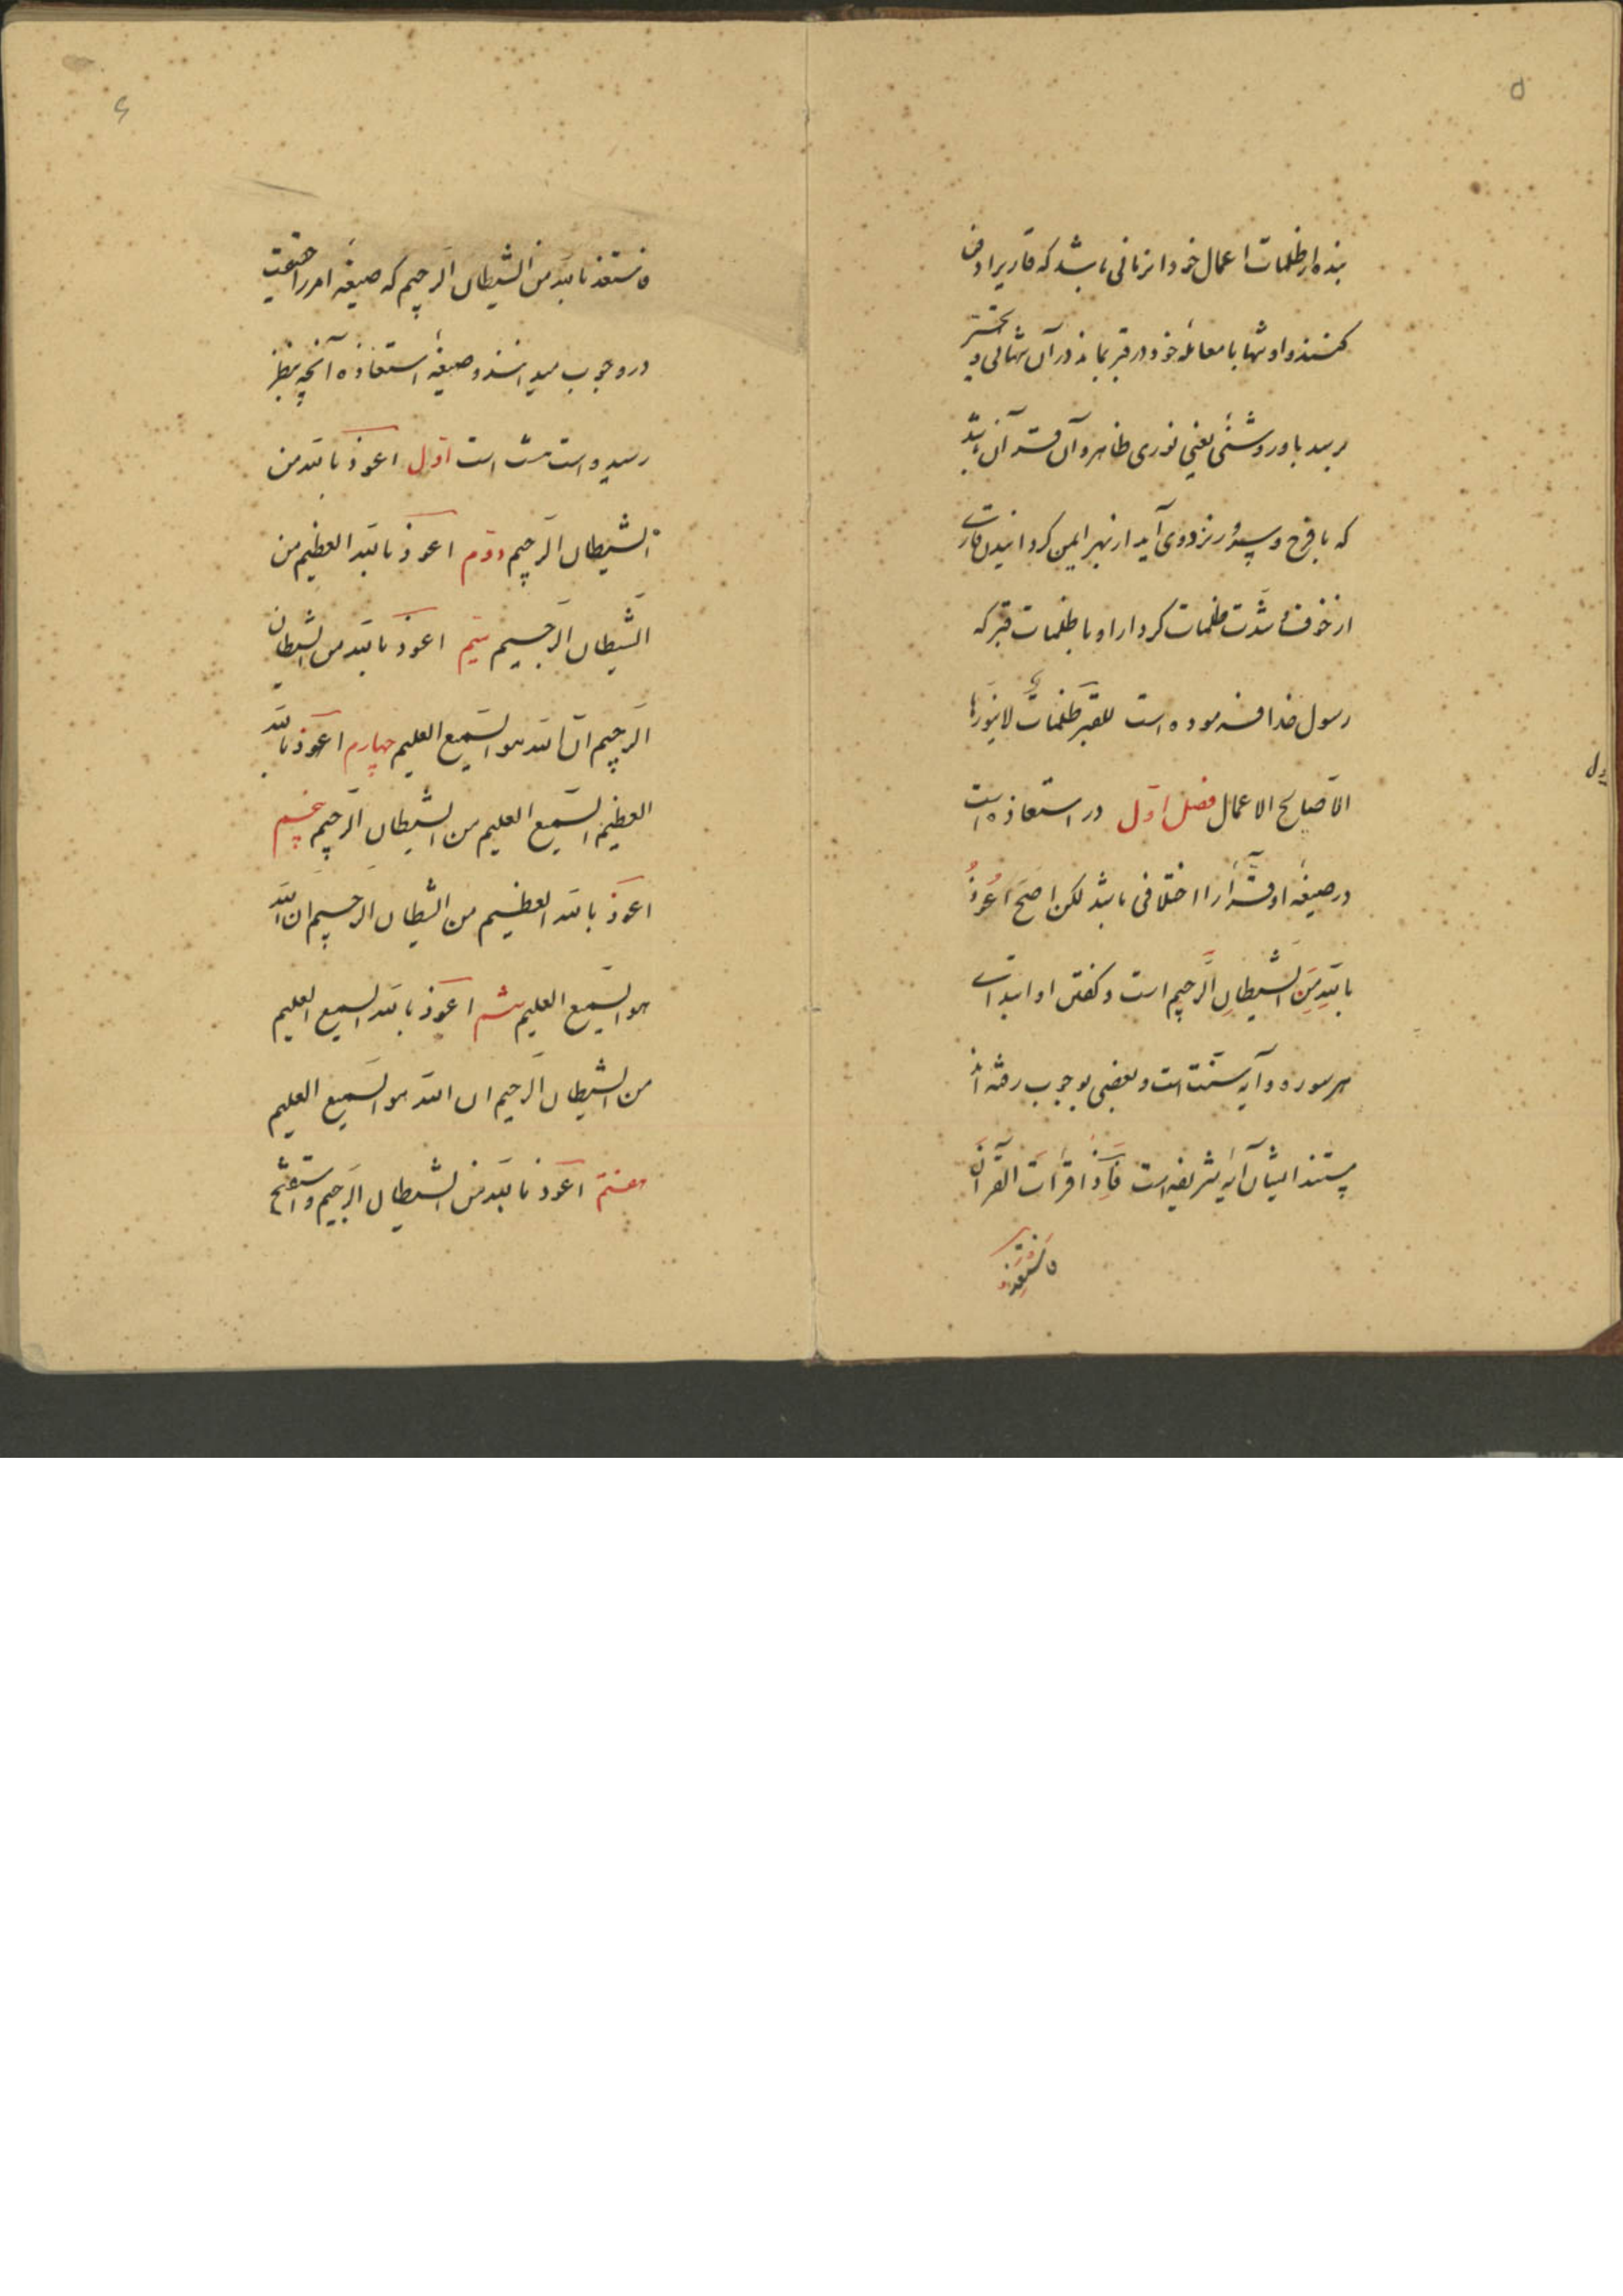 ۵
بنده از ظلمات اعمال خود این زمانی باشد که قاریرا دفن
کنند و او تنها با معامله خود در قبر بماند در آن تنهائی و
برسد باو روشنئی یعنی نوری ظاهر و آن قرآن باشد
که با فرح و سرور نزد وی آید از بهر ایمن کردانیدن قارئ
از خوف و شدّت ظلمات کردار او با ظلمات قبر که
رسول خدا فرموده است للقبر ظلماتٌ لا ینوّرها
الّا صالح الاعمال فصل اوّل در استعاذه است
در صیغهٔ او قرّاء را اختلافی باشد لکن اصحّ اَعُوذُ
باللّهِ مِنَ الشَّیطانِ الرَّجیم است و کفتن او ابتداء
هر سوره و آیه سنّت است و بعضی بوجوب رفته اند
مستند ایشان آیهٔ شریفه است فَاِذا قَرَأتَ القُرآنَ
فاستَعِذ
۶
فاستعذ باللّه من الشیطان الرّجیم که صیغهٔ امر را حقیقت
در وجوب میدانند و صیغهٔ استعاذه آنچه بنظر
رسیده است هشت است اوّل اعوذ باللّه من
الشیطان الرّجیم دوّم اعوذ باللّه العظیم من
الشّیطان الرّجیم سیّم اعوذ باللّه من الشیطان
الرّجیم انّ اللّه هو السّمیع العلیم چهارم اعوذ باللّه
العظیم السّمیع العلیم من الشّیطان الرّجیم پنجم
اعوذ باللّه العظیم من الشیطان الرّجیم ان اللّه
هو السّمیع العلیم ششم اعوذ باللّه السمیع العلیم
من الشیطان الرّجیم ان اللّه هو السّمیع العلیم
هفتم اعوذ باللّه من الشیطان الرّجیم و استفتح